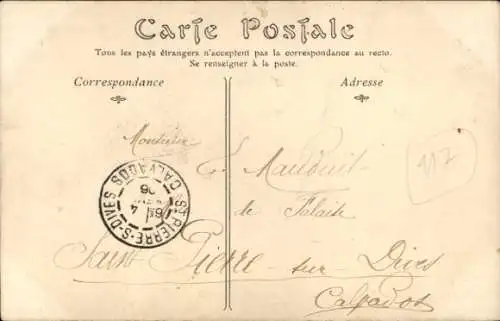 Carte Postale
Tous les pays étrangers n'acceptent pas la correspondance au recto.
Se renseigner à la poste.
Correspondance
Adresse
Monsieur
E. Mauduit
de Falaise
Saint Pierre sur Dives
Calvados
ST PIERRE-S-DIVES
CALVADOS
06
117